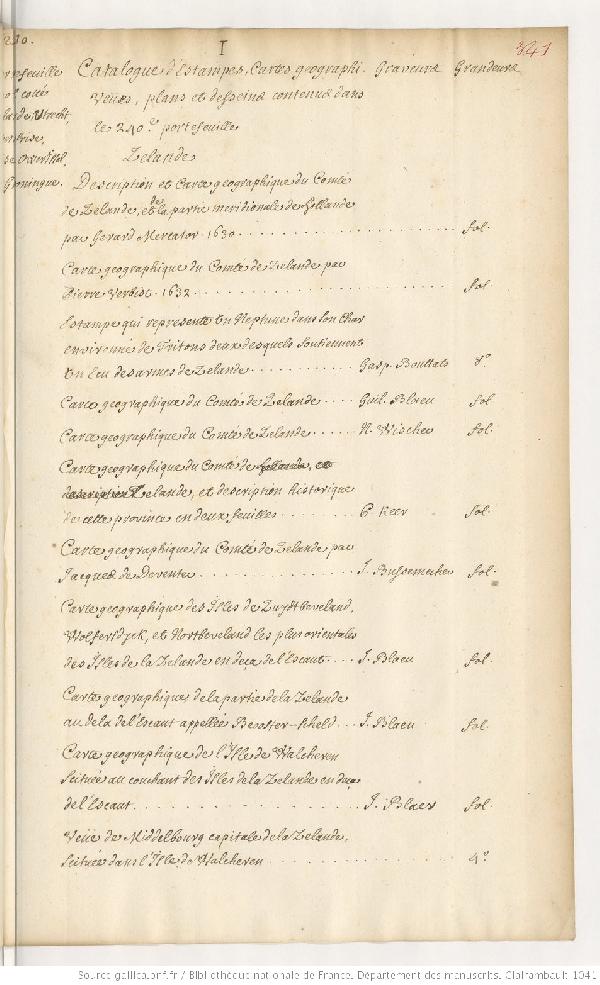 240.
I
341
Catalogue d'Estampes, Cartes geographi. Graveurs Grandeurs
Veües, plans et desseins contenus dans
le 240.e portefeuille
Zelande
Description et Carte geographique du Comté
de Zelande, et de la partie meridionale de Hollande
par Gerard Mercator 1630. fol.
Carte geographique du Comté de Zelande par
Pierre Verbist. 1632. fol.
Estampe qui represente un Neptune dans son Char
environné de Tritons deux desquels soutiennent
un Ecu des armes de Zelande Gasp. Bouttats 8.o
Carte geographique du Comté de Zelande Guil. Blaeu fol.
Carte geographique du Comté de Zelande N. Wischer fol.
Carte geographique du Comté de Zelande, et description historique
de cette province en deux feuilles P. Keer fol.
Carte geographique du Comté de Zelande par
Jacques de Deventer J. Bussemecher fol.
Carte geographique des Isles de Zuydtbeveland,
Wolfersdyck, et Nortbeveland les plus orientales
des Isles de la Zelande en deça de l'Escaut J. Blaeu fol.
Carte geographique de la partie de la Zelande
au dela de l'Escaut appellée Beooster-scheld J. Blaeu fol.
Carte geographique de l'Isle de Walcheren
scituée au couchant des Isles de la Zelande en deça
de l'Escaut J. Blaeu fol.
Veüe de Middelbourg capitale de la Zelande,
scituée dans l'Isle de Walcheren 4.o
Source gallica.bnf.fr / Bibliothèque nationale de France. Département des manuscrits. Clairambault 1041